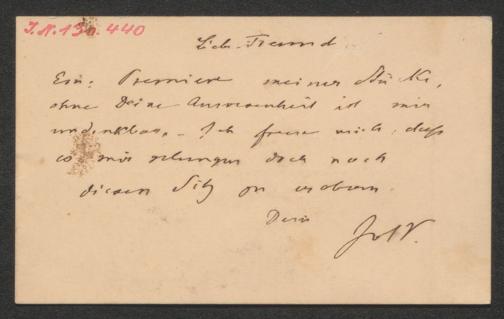 J.N. 130.440
Lieber Freund
Eine Premiere meiner Stücke,
ohne Deine Anwesenheit ist mir
undenkbar. Ich freue mich, dass
es mir gelungen doch noch
diesen Sitz zu erobern.
Dein